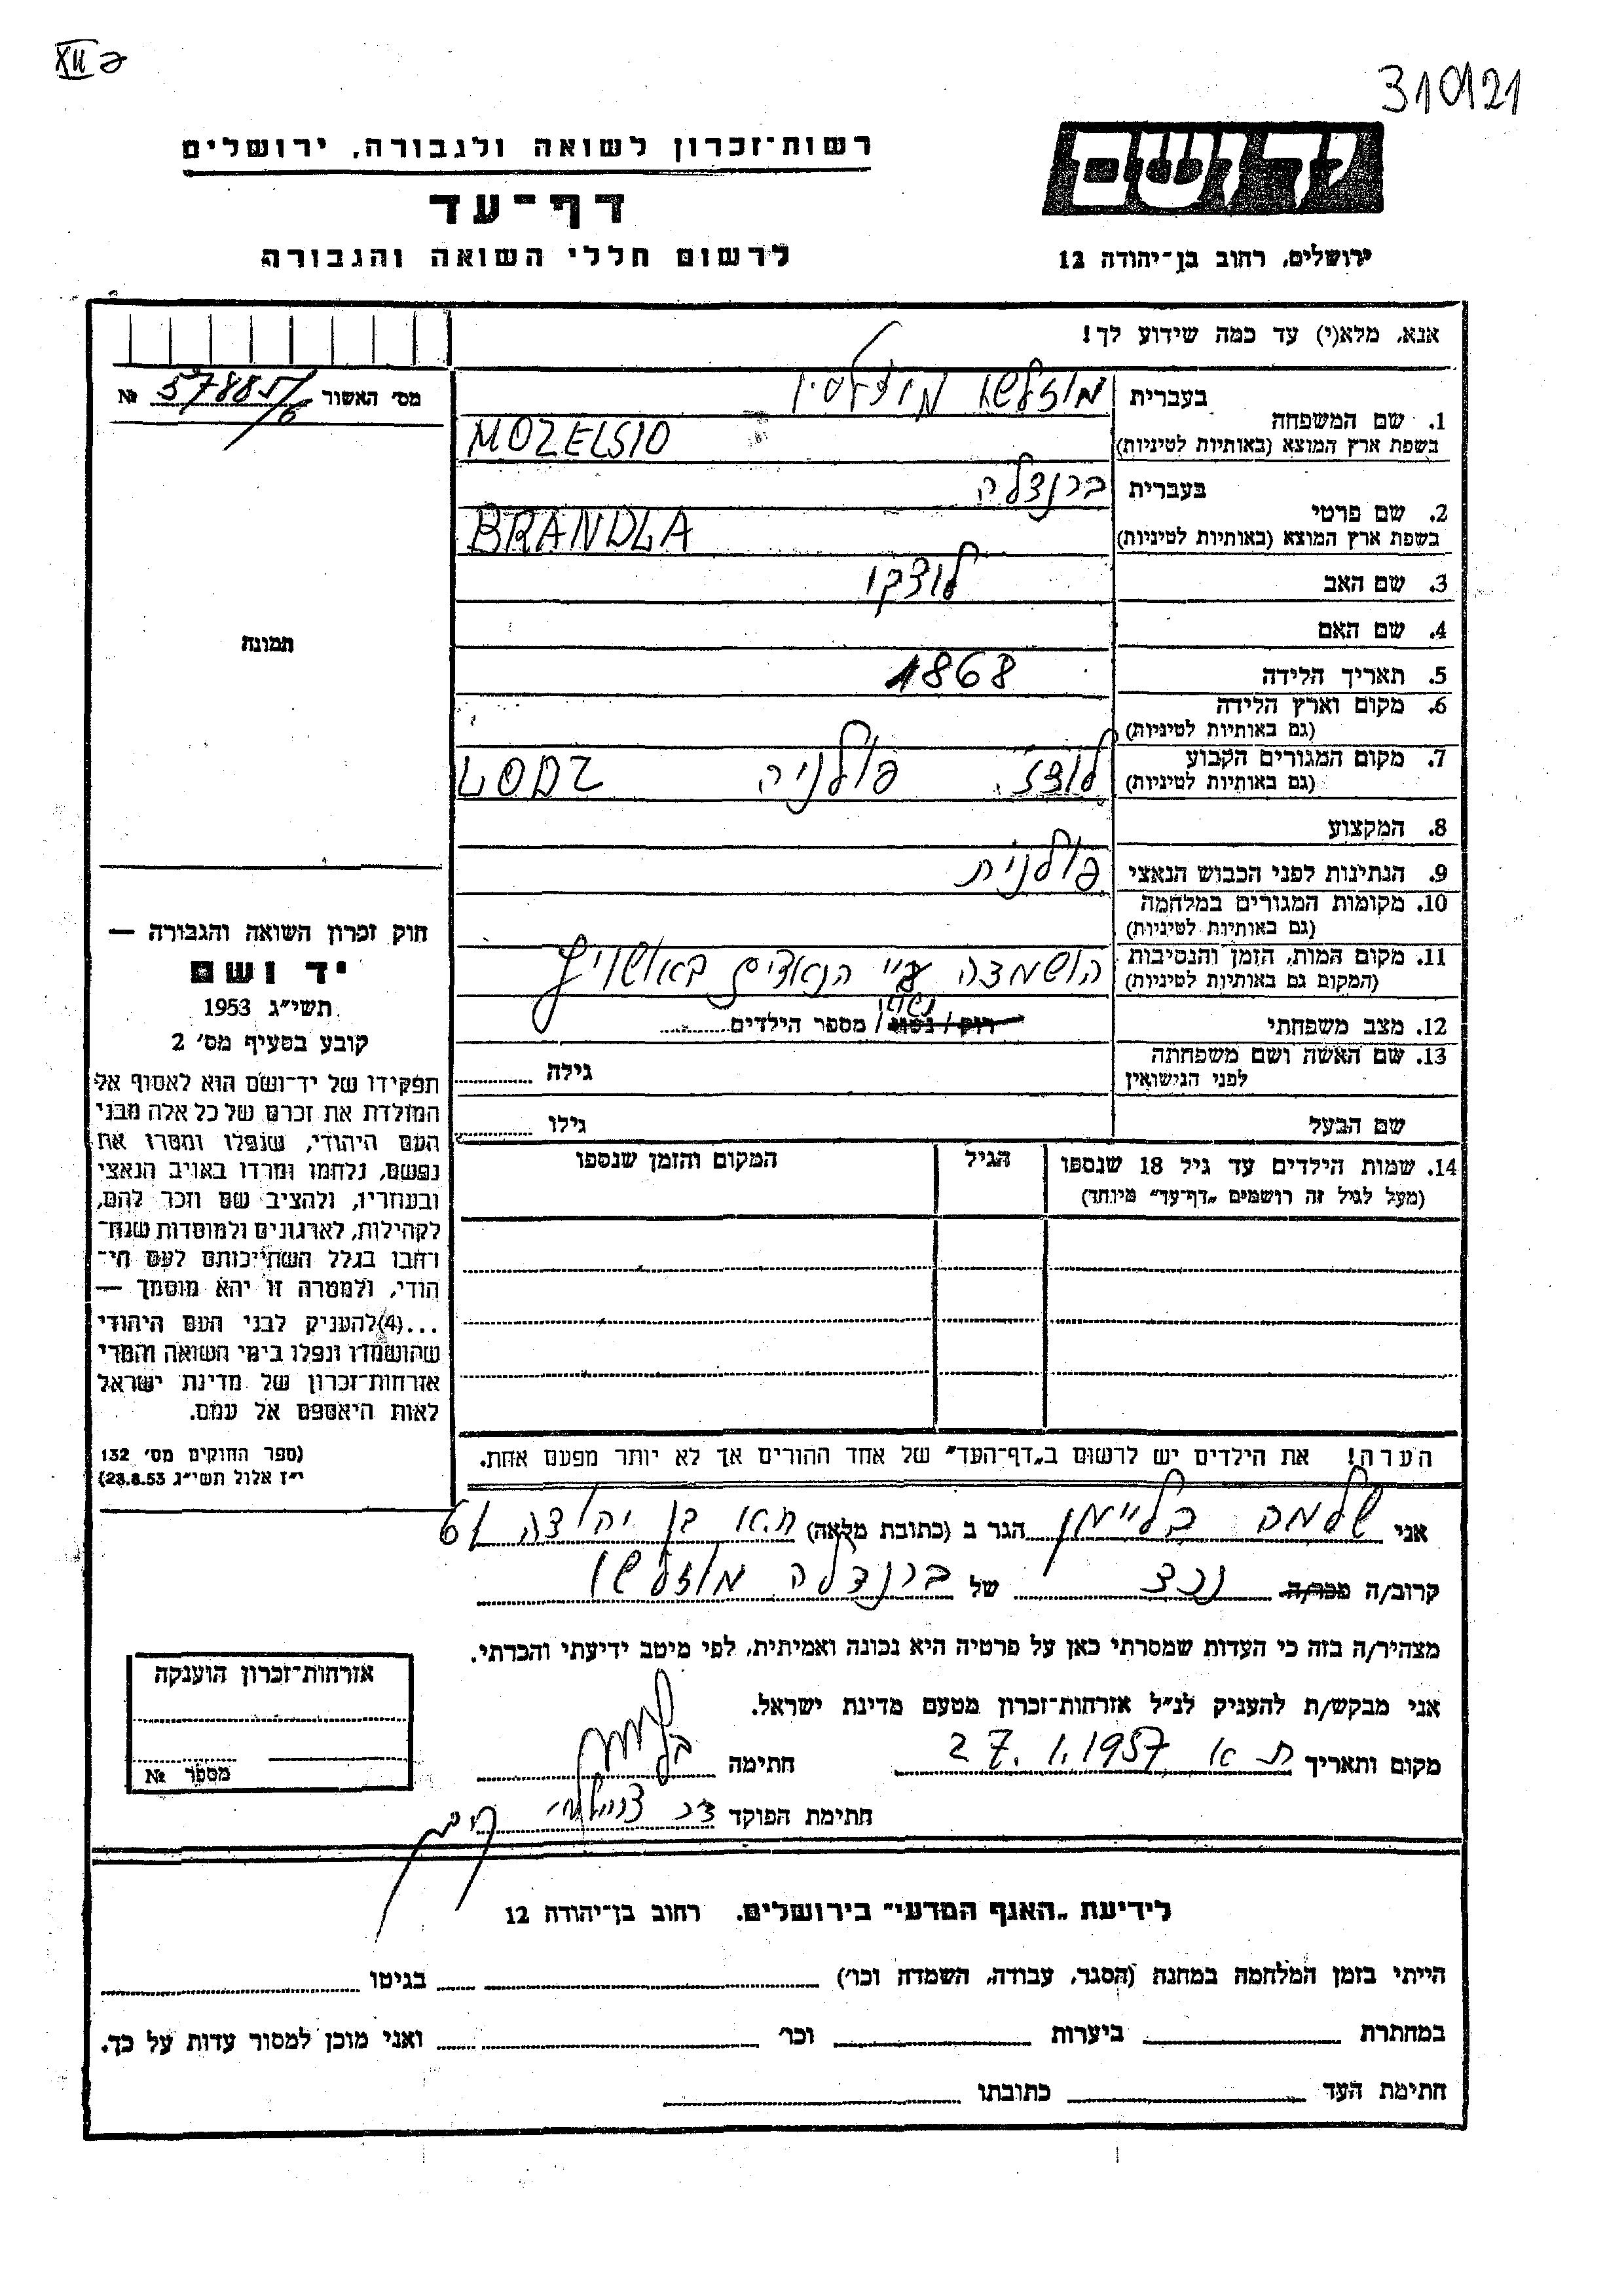 XII ב
310121
יד ושם
ירושלים, רחוב בן־יהודה 12
רשות־זכרון לשואה ולגבורה, ירושלים
דף־עד
לרשום חללי השואה והגבורה
אנא, מלא(י) עד כמה שידוע לך!
מס׳ האשור 57885/6 №
תמונה
1. שם המשפחה בעברית מוזלשו
בשפת ארץ המוצא (באותיות לטיניות) MOZELSIO
2. שם פרטי בעברית ברנדלה
בשפת ארץ המוצא (באותיות לטיניות) BRANDLA
3. שם האב
4. שם האם
5. תאריך הלידה 1868
6. מקום וארץ הלידה
(גם באותיות לטיניות)
7. מקום המגורים הקבוע לודז. פולניה LODZ
(גם באותיות לטיניות)
8. המקצוע
9. הנתינות לפני הכבוש הנאצי פולנית
10. מקומות המגורים במלחמה
(גם באותיות לטיניות)
11. מקום המות, הזמן והנסיבות הושמדה ע״י הנאצים באושויץ
(המקום גם באותיות לטיניות)
12. מצב משפחתי רוק / נשוי / מספר הילדים
13. שם האשה ושם משפחתה
לפני הנישואין גילה
שם הבעל גילו
14. שמות הילדים עד גיל 18 שנספו הגיל המקום והזמן שנספו
(מעל לגיל זה רושמים „דף־עד״ מיוחד)
הערה! את הילדים יש לרשום ב„דף־העד״ של אחד ההורים אך לא יותר מפעם אחת.
חוק זכרון השואה והגבורה —
יד ושם
תשי״ג 1953
קובע בסעיף מס׳ 2
תפקידו של יד־ושם הוא לאסוף אל
המולדת את זכרם של כל אלה מבני
העם היהודי, שנפלו ומסרו את
נפשם, נלחמו ומרדו באויב הנאצי
ובעוזריו, ולהציב שם וזכר להם,
לקהילות, לארגונים ולמוסדות שנח־
רחבו בגלל השתייכותם לעם הי־
הודי, ולמטרה זו יהא מוסמך —
...(4)להעניק לבני העם היהודי
שהושמדו ונפלו בימי השואה והמרי
אזרחות־זכרון של מדינת ישראל
לאות היאספם אל עמם.
(ספר החוקים מס׳ 132
י״ז אלול תשי״ג 28.8.53)
אני שלמה בליימן הגר ב (כתובת מלאה) ת.א בן יהודה 61
קרוב/ה מכר/ה נכד של ברנדלה מוזלשו
מצהיר/ה בזה כי העדות שמסרתי כאן על פרטיה היא נכונה ואמיתית, לפי מיטב ידיעתי והכרתי.
אני מבקש/ת להעניק לנ״ל אזרחות־זכרון מטעם מדינת ישראל.
מקום ותאריך ת א 27.1.1957 חתימה
חתימת הפוקד
אזרחות־זכרון הוענקה
מספר №
לידיעת „האגף המדעי״ בירושלים. רחוב בן־יהודה 12
הייתי בזמן המלחמה במחנה (הסגר, עבודה, השמדה וכו׳) בגיטו
במחתרת ביערות וכו׳ ואני מוכן למסור עדות על כך.
חתימת העד כתובתו